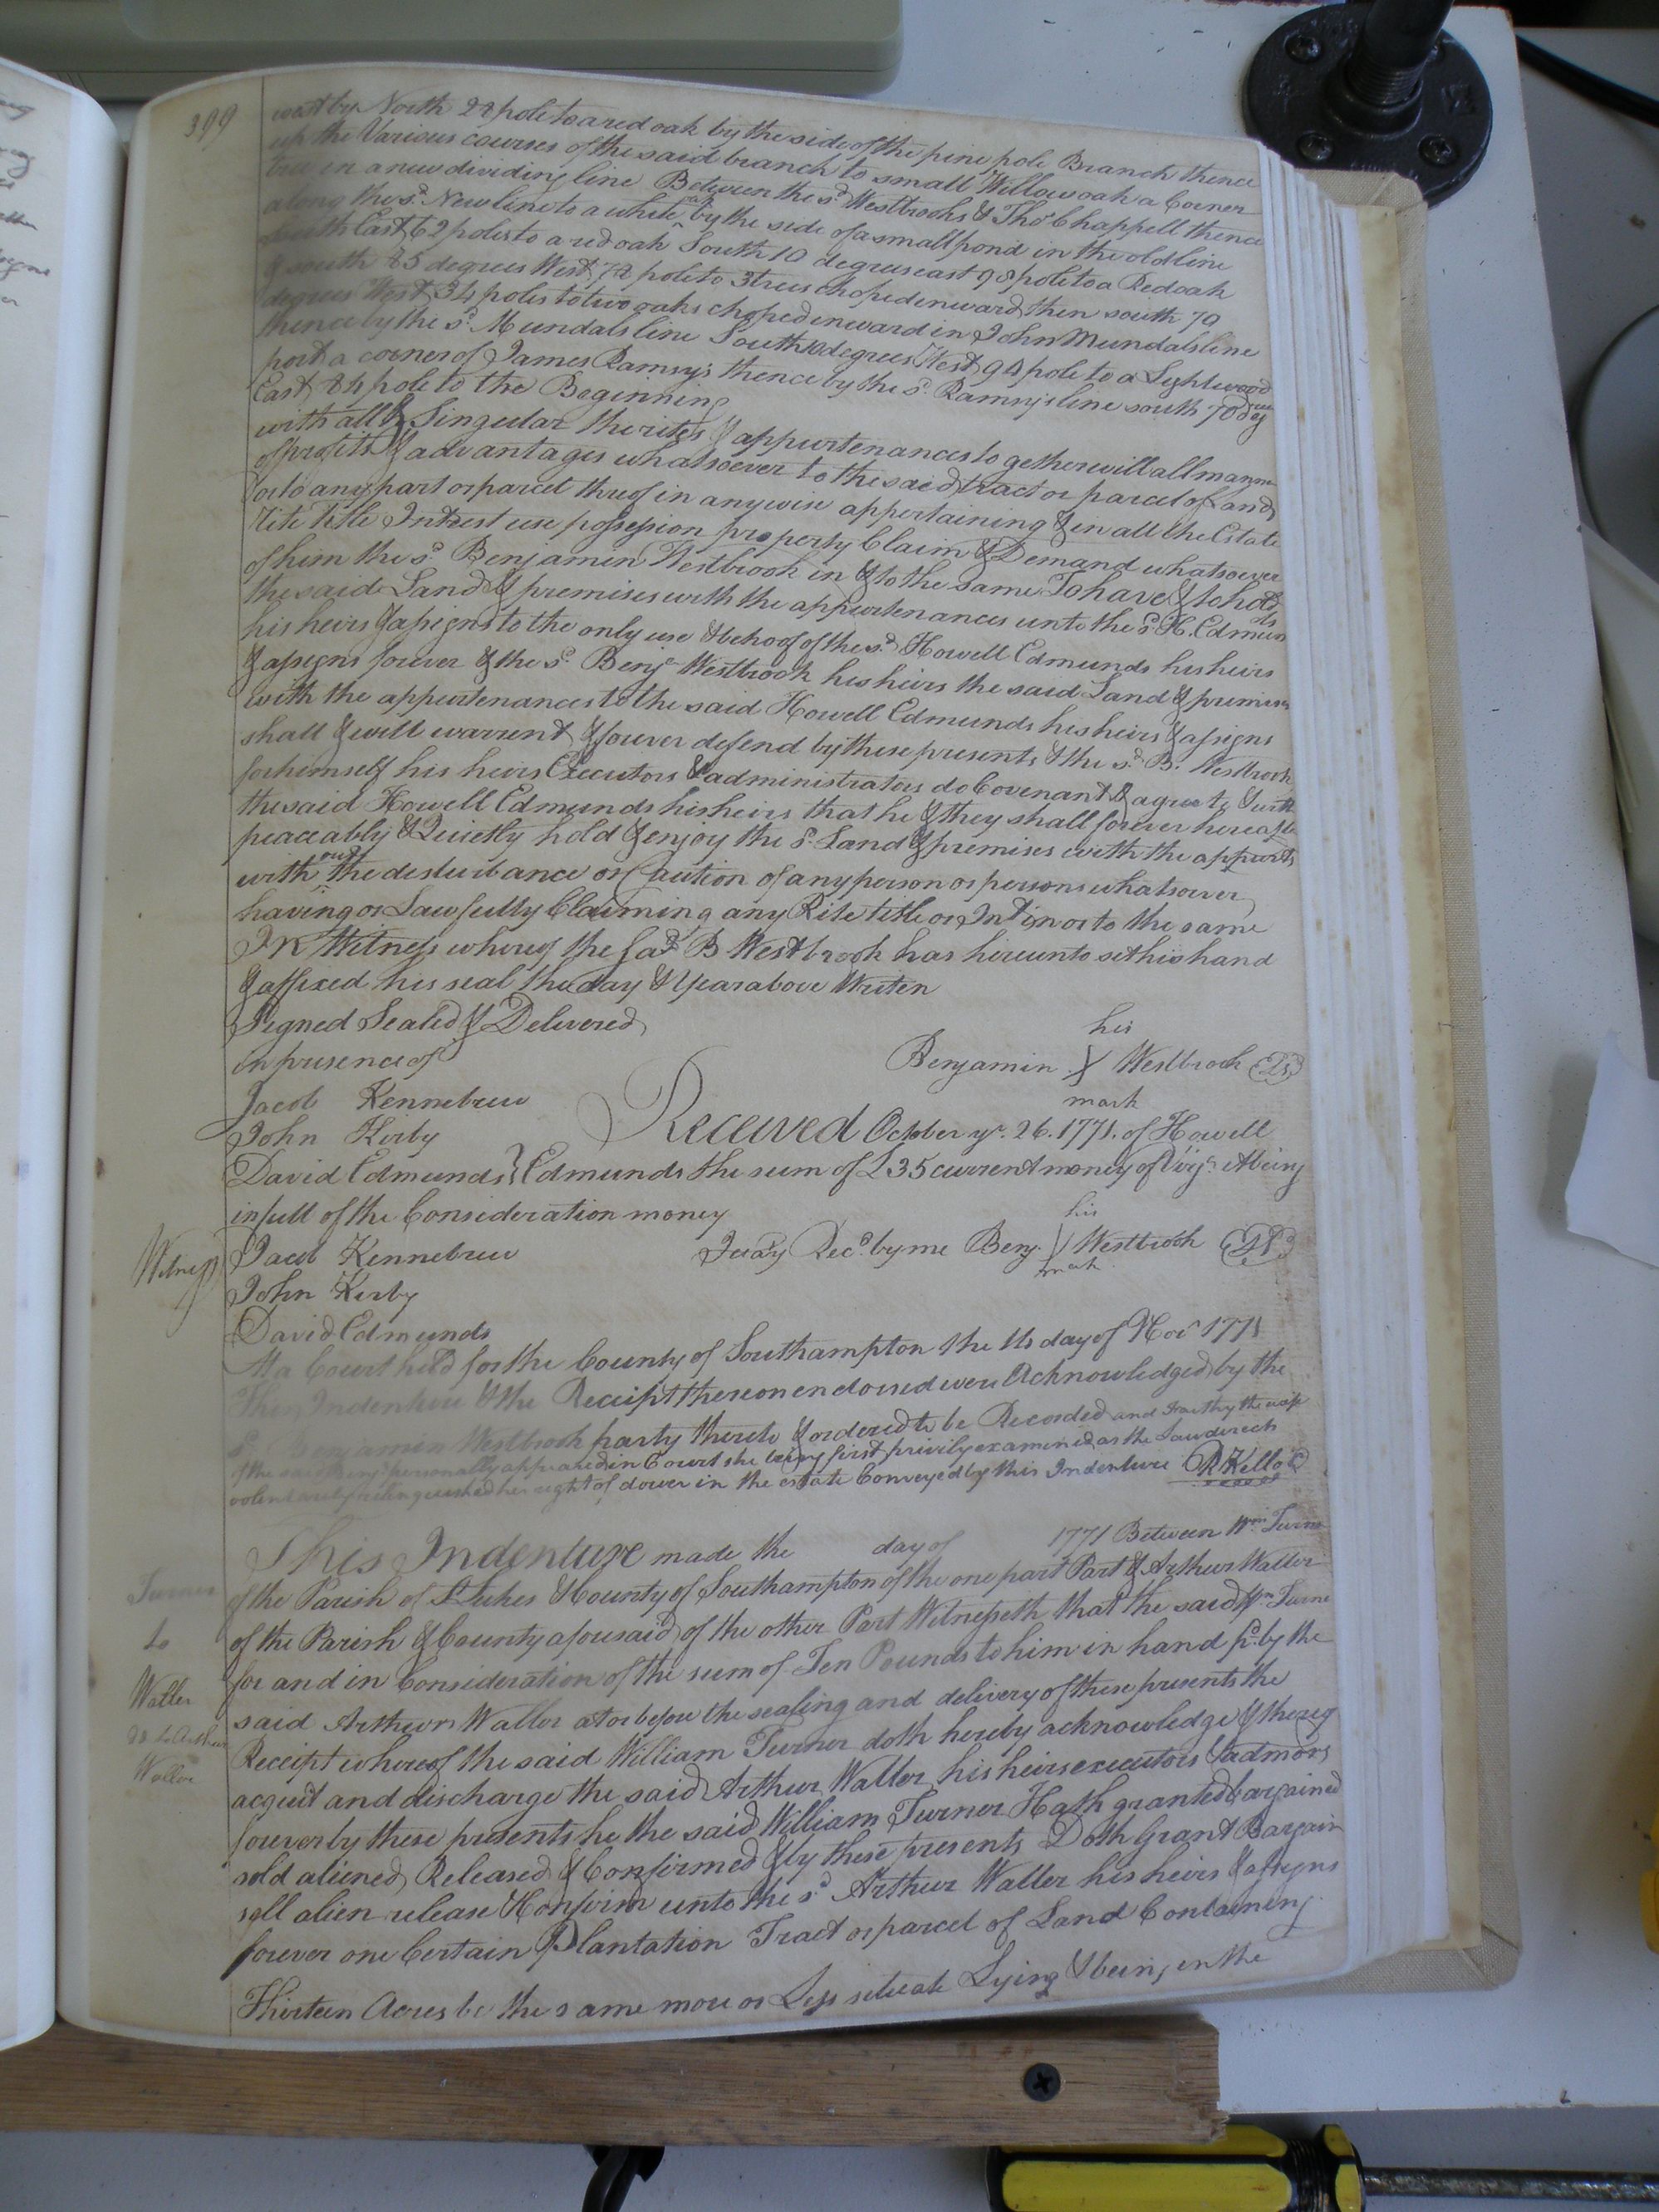 399
west by North 22 pole to a red oak by the side of the pine pole Branch thence
up the Various courses of the said branch to small Willow oak a Corner
tree in a new dividing line Between the sd Westbrooks & Thos Chappell thence
along the sd New line to a white oak by the side of a small pond in the old line
south East 62 poles to a red oak South 10 degrees east 98 pole to a Red oak
& south 85 degrees West 72 pole to 3 trees choped inward then south 79
degrees West 34 poles to two oaks choped inward in John Mundals line
thence by the sd Mundals line South 10 degrees West 94 pole to a Lightwood
post a corner of James Ramsy's thence by the sd Ramsys line south 70 degrees
East 84 pole to the Beginning
with all & Singular the rites & appurtenances together will all manner
of profits & advantages whatsoever to the said tract or parcel of Land
or to any part or parcel thereof in any wise appertaining & in all the Estate
Rite title Intrest use possession property Claim & Demand whatsoever
of him the sd Benjamin Westbrook in & to the same To have & to hold
the said Land & premises with the appurtenances unto the sd H. Edmunds
his heirs & assigns to the only use & behoof of the sd Howell Edmunds his heirs
& assigns forever & the sd Benja Westbrook his heirs the said Land & premises
with the appurtenances to the said Howell Edmunds his heirs & assigns
shall & will warrent & forever defend by these presents & the sd B. Westbrook
for himself his heirs Executors & administrators do Covenant & agree to & with
the said Howell Edmunds his heirs that he & they shall forever hereafter
peaceably & Quietly hold & enjoy the sd Land & premises with the appurts
with out the desturbance or Caution of any person or persons whatsoever
having or Lawfully Claiming any Rite title or Int in or to the same
IN Witness whereof the sad B Westbrook has hereunto set his hand
& affixed his seal the day & Year above Writen
Signed Sealed & Delivered
in presence of
his
Benjamin Westbrook Ls
mark
Jacob Kennebrew
John Kirby
Received October ye. 26. 1771. of Howell
David Edmunds } Edmunds the sum of £35 current money of Virga it being
in full of the Consideration money
his
Witness Jacob Kennebrew
Recd. by me Benj. Westbrook LS
mark
John Kirby
David Edmunds
At a Court held for the County of Southampton the 14 day of Nov 1771
This Indenture & the Receipt thereon endorsed were Acknowledged by the
sd Benjamin Westbrook party thereto & ordered to be Recorded and the wife
of the said Benja personally appeared in Court she being first privily examined as the Law directs
volentarily relinquished her right of dower in the estate Conveyed by this Indenture R Kello C
This Indenture made the day of 1771 Between Wm Turner
Turner
of the Parish of St Lukes & County of Southampton of the one part Part & Arthur Waller
to
of the Parish & County aforesaid of the other Part Witnesseth that the said Wm Turner
for and in Consideration of the sum of Ten Pounds to him in hand pd. by the
Waller
said Arthur Waller at or before the sealing and delivery of these presents the
do to Arthur
Receipt whereof the said William Turner doth hereby acknowledge & thereof
Waller
acquit and discharge the said Arthur Waller his heirs executors & admors
forever by these presents he the said William Turner Hath granted bargained
sold aliened Released & Confirmed & by these presents Doth Grant Bargain
sell alien release & Confirm unto the sd Arthur Waller his heirs & assigns
forever one Certain Plantation Tract or parcel of Land Containing
Thirteen Acres be the same more or Less situate Lying & being in the